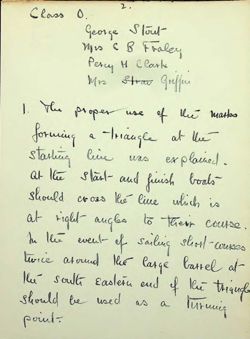 2.
Class O.
George Stout
Mrs C B Fraley
Percy H Clark
Mrs Griffin
1. The proper use of the marks
forming a triangle at the
starting line was explained.
At the start and finish boats
should cross the line which is
at right angles to their course.
In the event of sailing short courses
twice around the large barrel at
the south eastern end of the triangle
should be used as a turning
point.